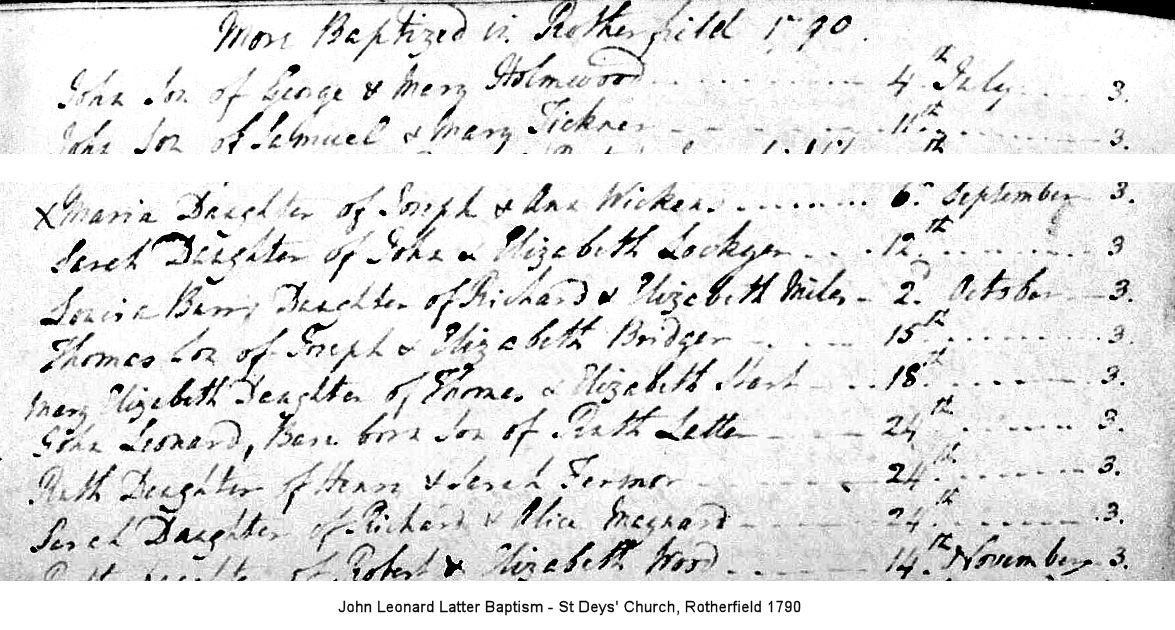 More Baptized in Rotherfield 1790.
John Son of George & Mary Holmewood 4th July 3.
John Son of Samuel & Mary Tickner 11th 3.
X Maria Daughter of Joseph & Ann Wickens 6th September 3.
Sarah Daughter of John & Elizabeth Lockyer 12th 3
Louisa Daughter of Richard & Elizabeth Miles 2d October 3.
Thomas Son of Joseph & Elizabeth Bridger 15th 3.
Mary Elizabeth Daughter of Thomas & Elizabeth Hart 18th 3.
John Leonard, Base born Son of Ruth Latter 24th 3.
Ruth Daughter of Henry & Sarah Fermor 24th 3.
Sarah Daughter of Richard & Alice Maynard 24th 3.
Daughter of Robert & Elizabeth Wood 14th November 3.
John Leonard Latter Baptism - St Deys' Church, Rotherfield 1790